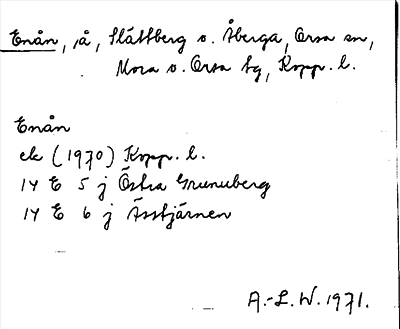 Enån, å, Slättberg o. Åberga, Orsa sn,
Mora o. Orsa tg, Kopp. l.
Enån
ek (1970) Kopp. l.
14 E 5 j Östra Grunuberg
14 E 6 j Ässtjärnen
A.-L. W. 1971.